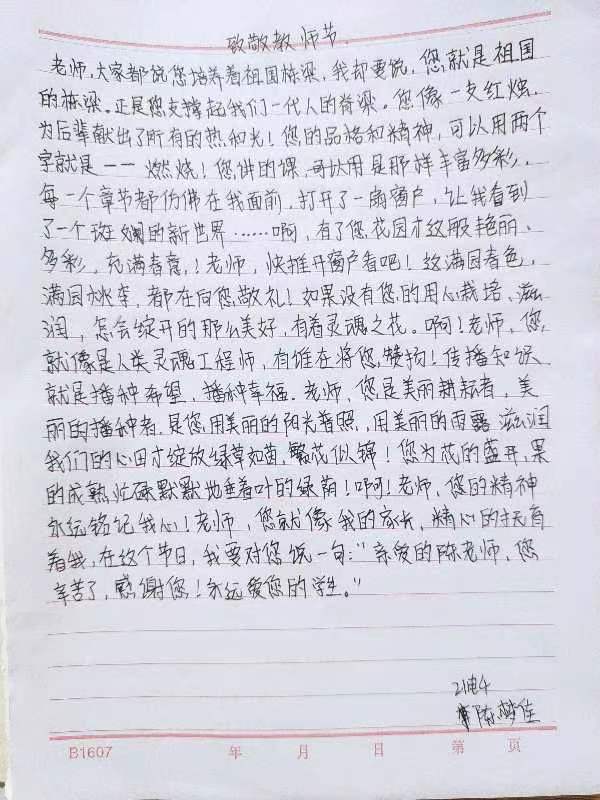 致敬教师节
老师,大家都说您培养着祖国栋梁,我却要说,您就是祖国
的栋梁.正是您支撑起我们一代人的脊梁。您像一支红烛,
为后辈献出了所有的热和光!您的品格和精神,可以用两个
字就是——燃烧!您讲的课,可以用是那样丰富多彩,
每一个章节都仿佛在我面前,打开了一扇窗户,让我看到
了一个斑斓的新世界……啊,有了您,花园才这般艳丽、
多彩,充满春意,!老师,快推开窗户看吧!这满园春色,
满园桃李,都在向您敬礼!如果没有您的用心栽培、滋
润,怎会绽开的那么美好,有着灵魂之花。啊!老师,您
就像是人类灵魂工程师,有谁在将您赞扬!传播知识
就是播种希望,播种幸福.老师,您是美丽耕耘者,美
丽的播种者.是您用美丽的阳光普照,用美丽的雨露滋润
我们的心田才绽放绿草如茵,繁花似锦!您为花的盛开,果
的成熟忙碌默默地垂着叶的绿荫!啊!老师,您的精神
永远铭记我心!老师,您就像我的家长,精心的抚育
着我,在这个节日,我要对您说一句:"亲爱的陈老师,您
辛苦了,感谢您!永远爱您的学生。"
21电4
陈梦佳
B1607 年 月 日 第 页